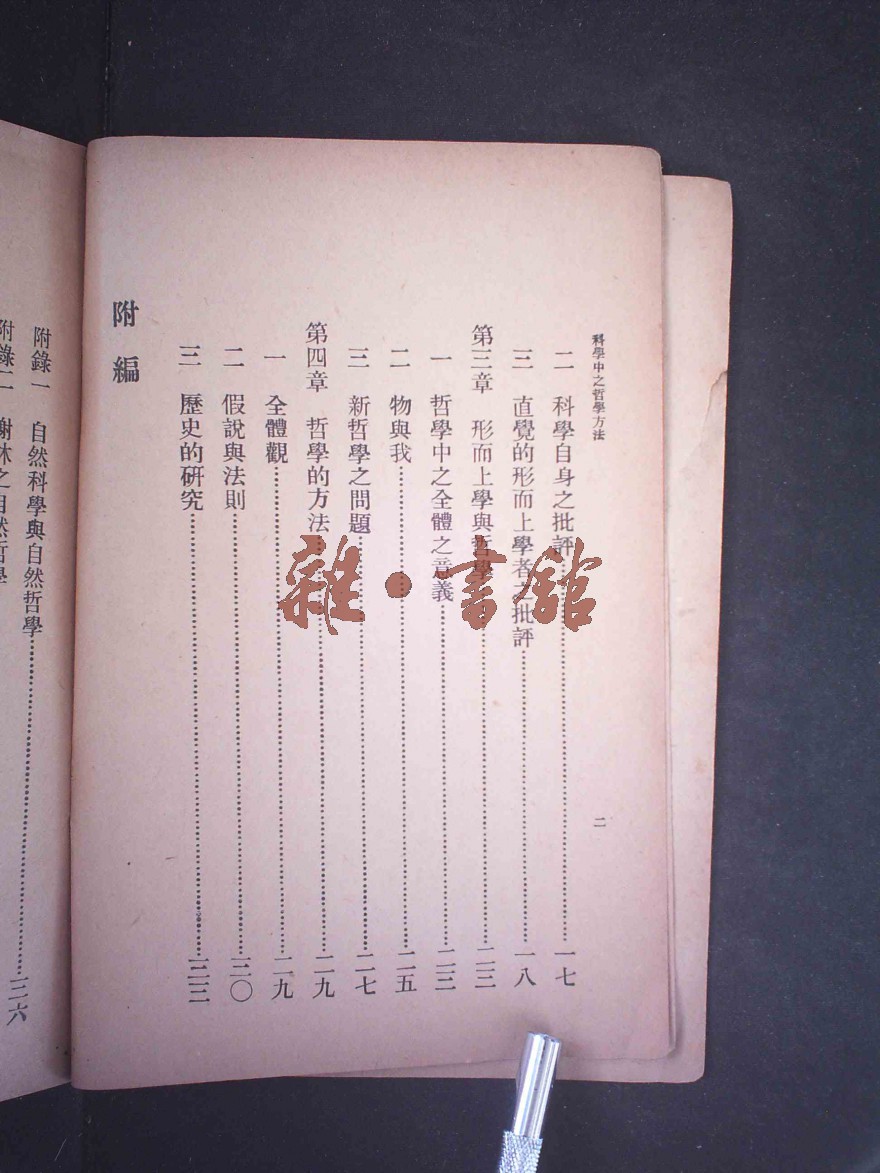 科學中之哲學方法
二
二 科學自身之批評……一七
三 直覺的形而上學者之批評……一八
第三章 形而上學與哲學……二三
一 哲學中之全體之意義……二三
二 物與我……二五
三 新哲學之問題……二七
第四章 哲學的方法……二九
一 全體觀……二九
二 假說與法則……三〇
三 歷史的研究……三三
附編
附錄一 自然科學與自然哲學……三六
附錄二 謝林之自然哲學
雜·書館